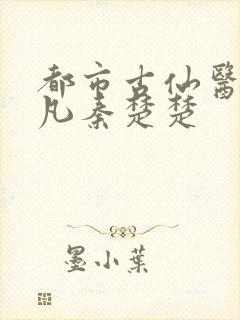 都市古仙醫
凡秦楚楚
墨小葉